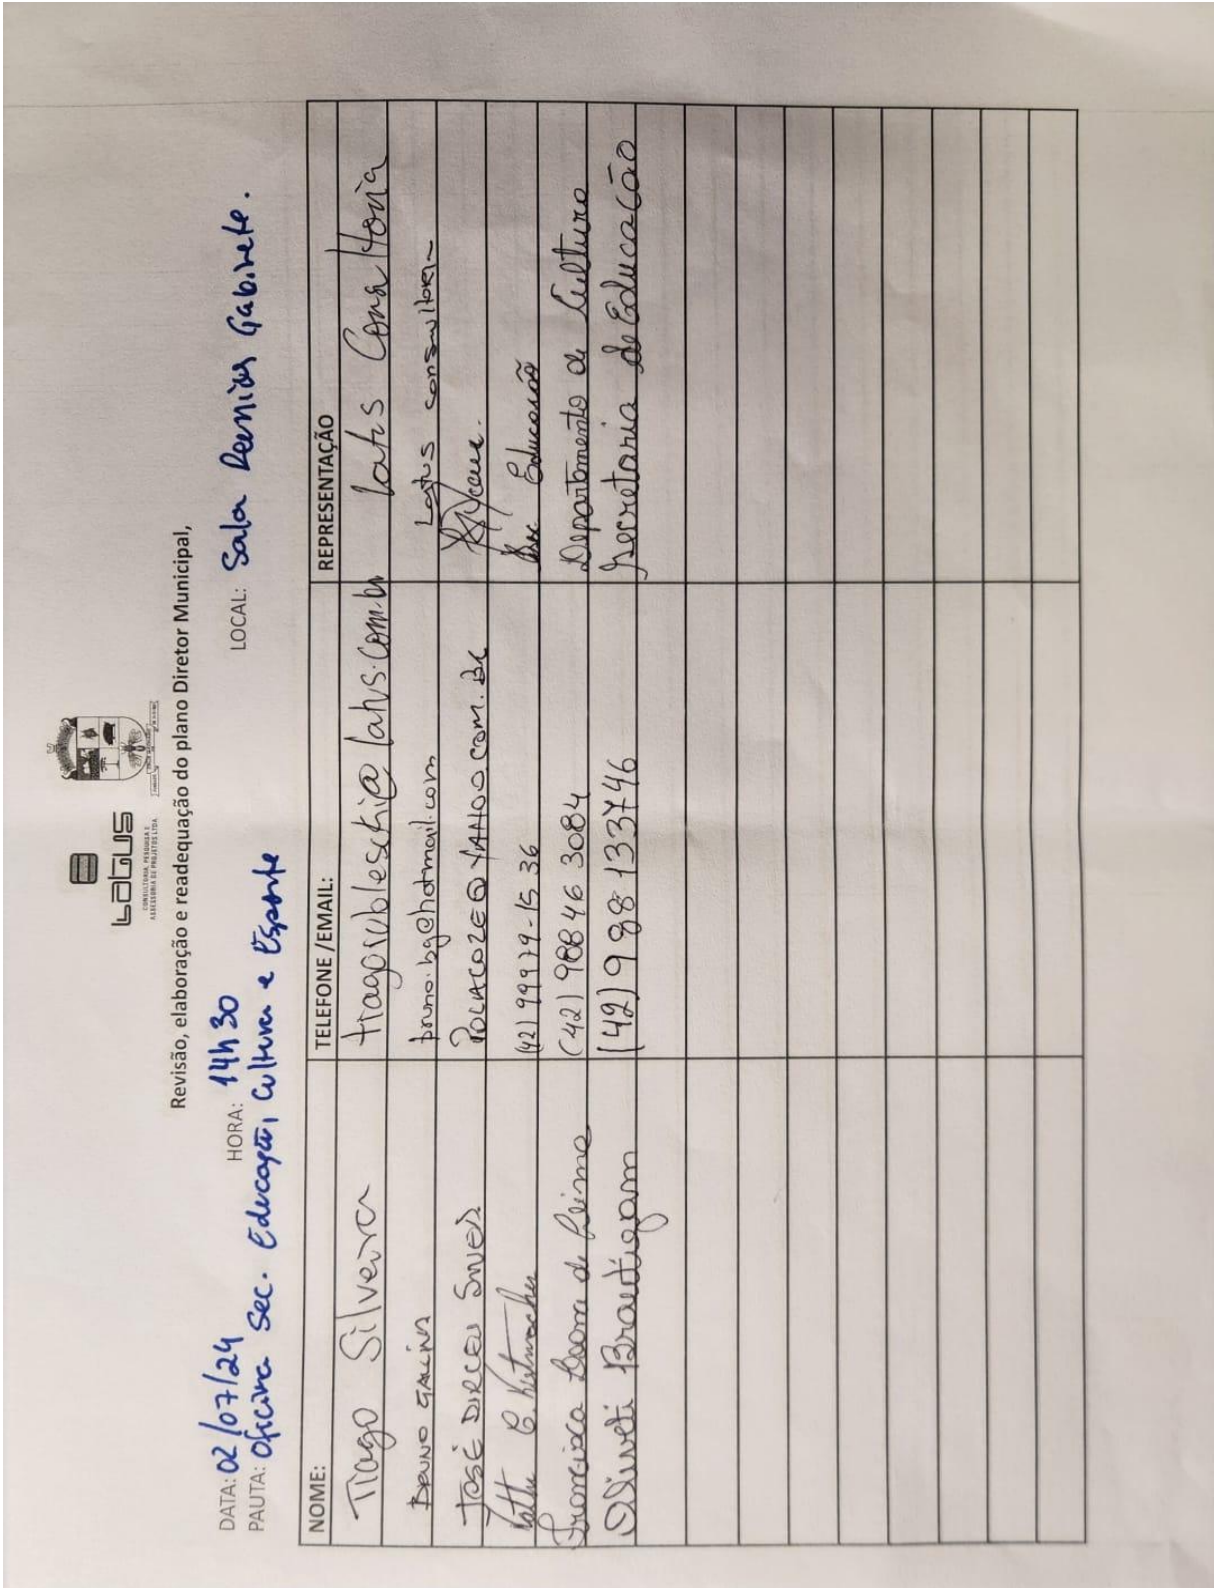 Latus
CONSULTORIA, PESQUISA E
ASSESSORIA DE PROJETOS LTDA
Revisão, elaboração e readequação do plano Diretor Municipal,
DATA: 02/07/24 HORA: 14h30 LOCAL: Sala Reunião Gabinete.
PAUTA: Oficina Sec. Educação, Cultura e Esporte
NOME: TELEFONE /EMAIL: REPRESENTAÇÃO
Tiago Silveira @latus.com.br Latus Consultoria
BRUNO bruno.bg@hotmail.com Latus consultoria
JOSÉ DIRCEU POLACOZE@YAHOO.COM.BR
(42) 99979-15 36 Sec Educação
Francisca de (42) 98846 3084 Departamento de Cultura
Oliveti Brautigam (42) 988133746 Secretaria de Educação